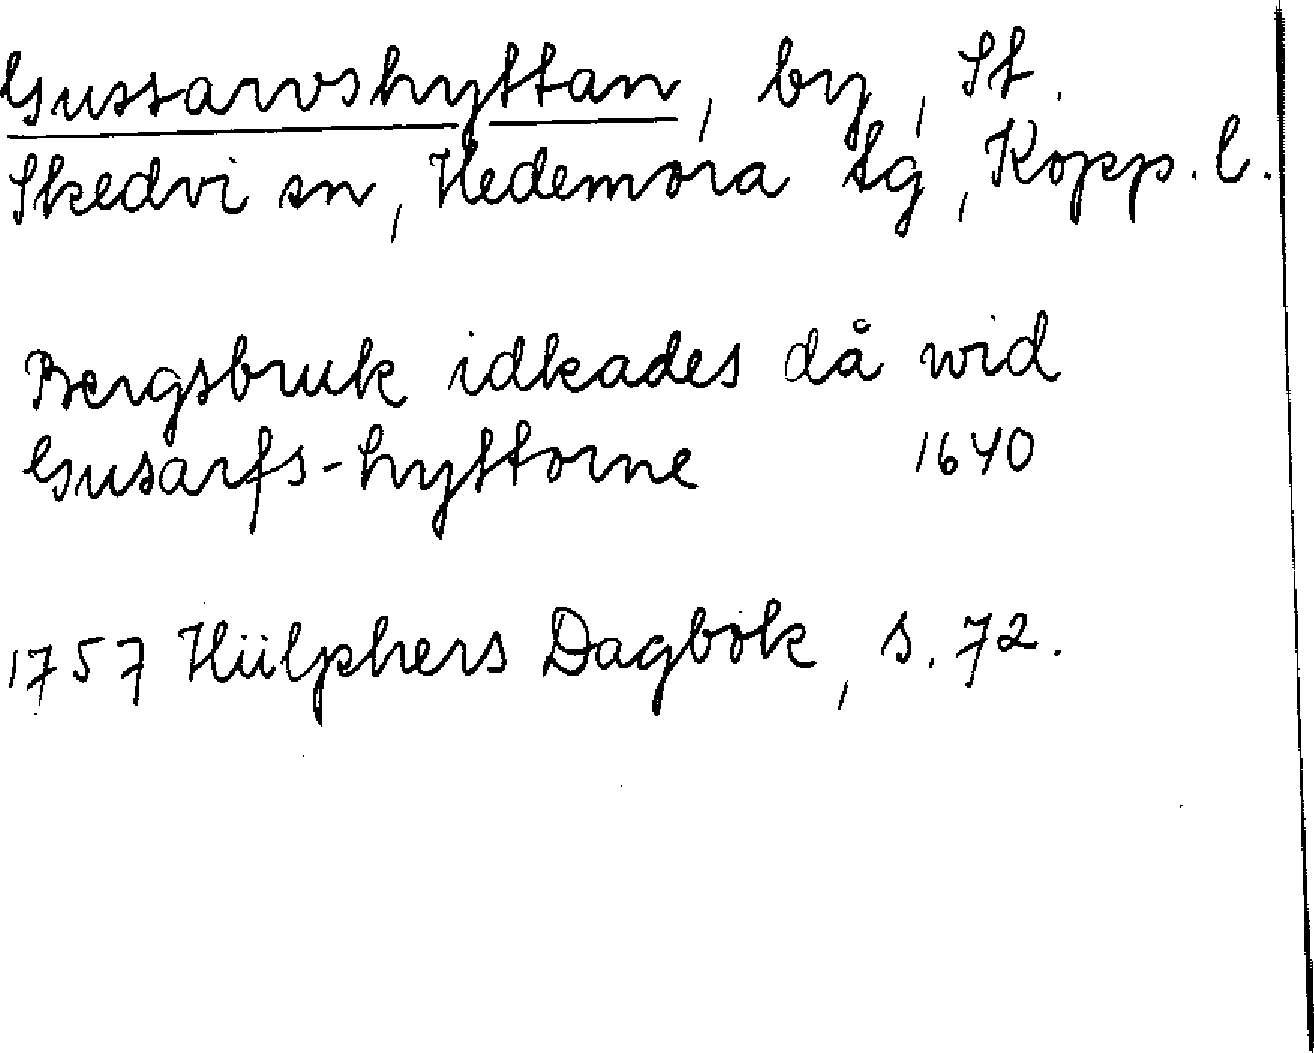 Gussarvshyttan, by, St.
Skedvi sn, Hedemora tg, Kopp. l.
Bergsbruk idkades då wid
Gusarfs-hyttorne 1640
1757 Hülphers Dagbok, s. 72.